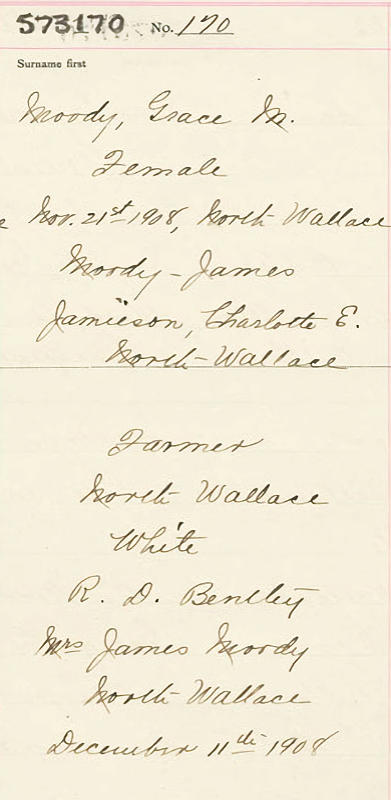 573170 No. 170
Surname first
Moody, Grace M.
Female
Nov. 21st 1908, North Wallace
Moody - James
Jamieson, Charlotte E.
North Wallace
Farmer
North Wallace
White
R. D. Bentley
Mrs James Moody
North Wallace
December 11th 1908